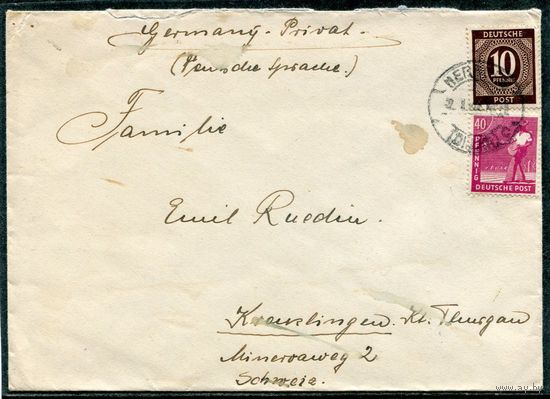 Germany - Privat -
(Deutsche Sprache.)
DEUTSCHE
10
PFENNIG
POST
40
PFENNIG
DEUTSCHE POST
Familie
Emil Ruedin.
Kreuzlingen. Kt. Thurgau
Minervaweg 2
Schweiz.
www.ay.by